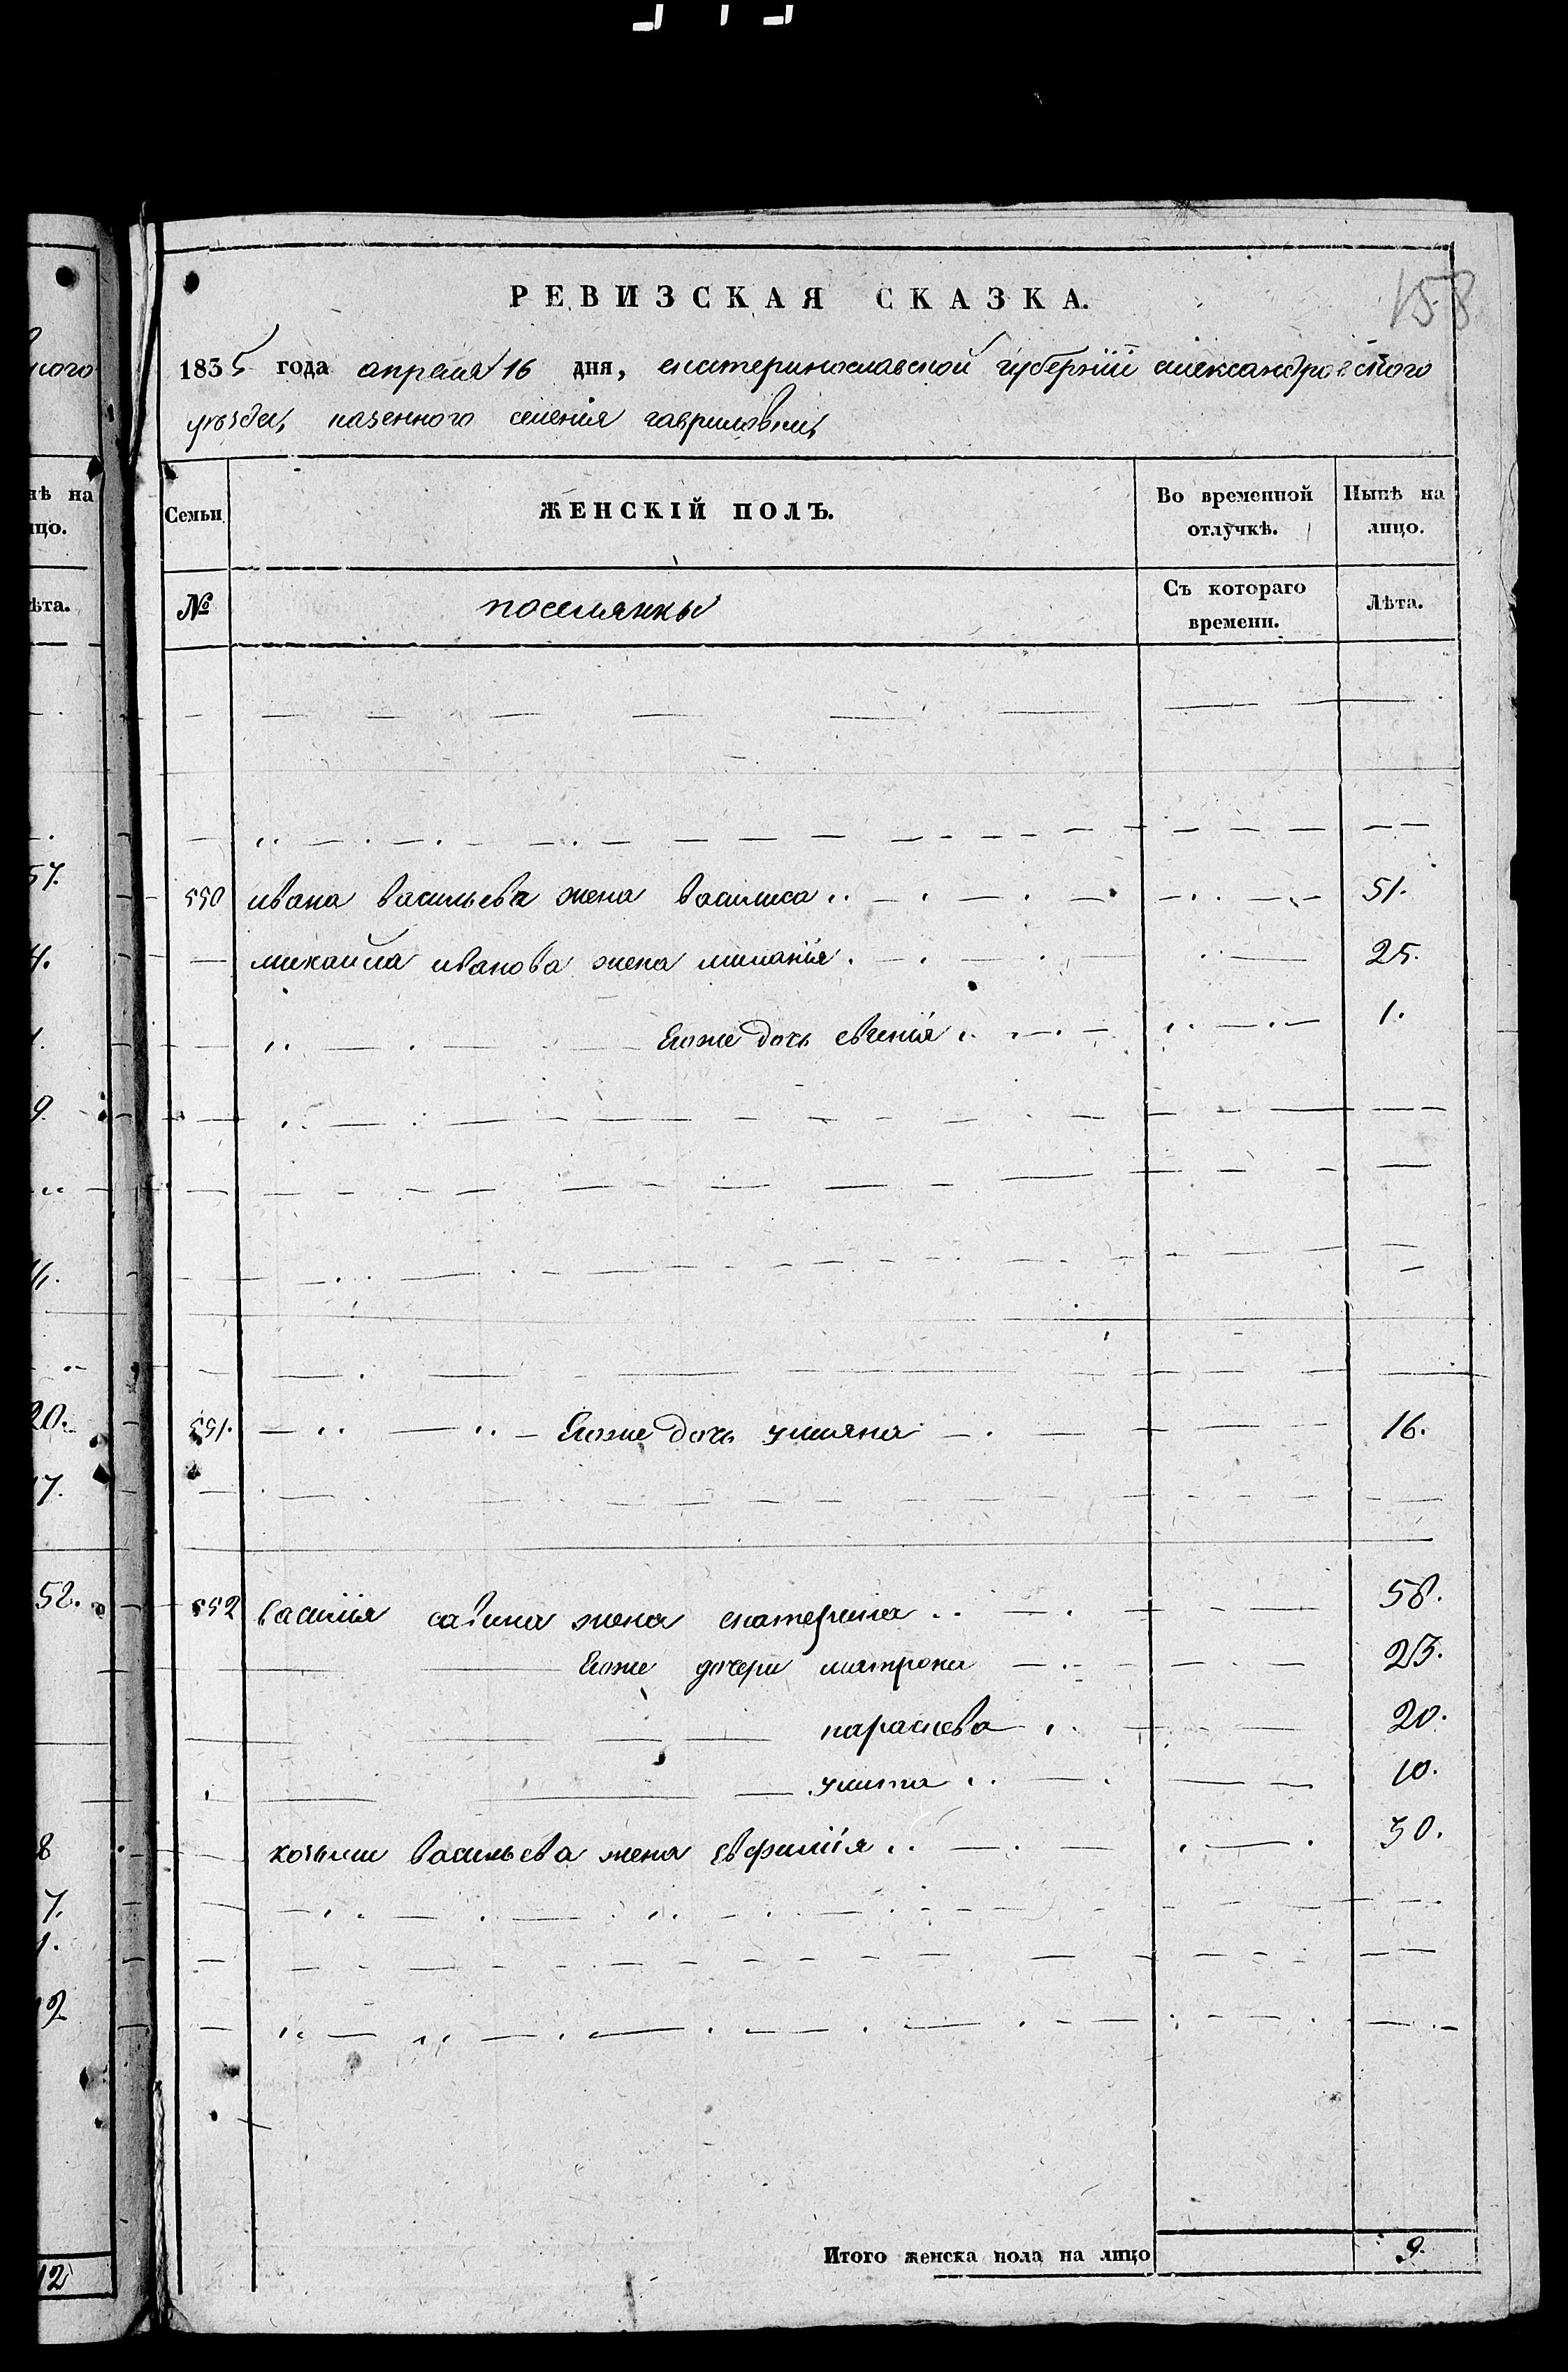 158
РЕВИЗСКАЯ СКАЗКА.
1835 года апреля 16 дня, екатеринославской губернїи александровского
уезда, казенного селения гавриловки,
Семьи
ЖЕНСКІЙ ПОЛЪ.
Во временной отлучкѣ.
Нынѣ на лицо.
№
поселянки
Съ котораго времени.
Лѣта.
550 ивана васильева жена василиса 51.
михайла иванова жена миланїя. 25.
Егоже дочь евгенїя 1.
551. Егоже дочь ульяна 16.
552 василїя савина жена екатерина 58.
Егоже дочери матрона 23.
параскева 20.
улита 10.
васильева жена евфимїя 30.
Итого женска пола на лицо 9.
ного
нѣ на
ицо.
ѣта.
57.
4.
1.
9.
20.
17.
52.
8
7.
1.
12
12